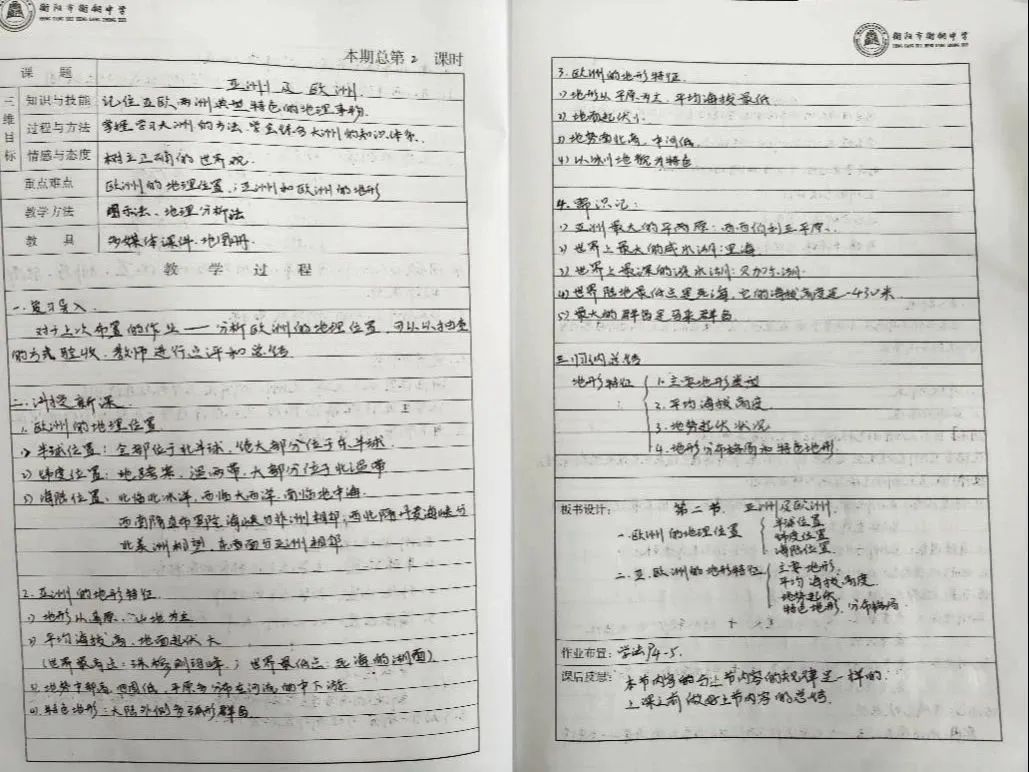 衡阳市衡钢中学
本期总第2课时
课题 亚洲及欧洲
三维目标
知识与技能 记住亚欧两洲典型特色的地理事物.
过程与方法 掌握学习大洲的方法.学会综合大洲的知识体系.
情感与态度 树立正确的世界观.
重点难点 欧洲的地理位置;亚洲和欧洲的地形
教学方法 图示法、地理分析法
教具 多媒体课件.地图册.
教学过程
一.复习导入.
对于上次布置的作业——分析欧洲的地理位置,可以以抽查
的方式验收.教师进行点评和总结
二.讲授新课
1.欧洲的地理位置
1)半球位置:全部位于北半球,绝大部分位于东半球.
2)纬度位置:地跨寒、温两带,大部分位于北温带
3)海陆位置、北临北冰洋,西临大西洋,南临地中海.
西南隔直布罗陀海峡与非洲相邻;西北隔丹麦海峡与
北美洲相望,东南面与亚洲相邻
2.亚洲的地形特征.
1)地形以高原、山地为主
2)平均海拔高、地面起伏大
(世界最高点:珠穆朗玛峰;世界最低点:死海的湖面)
3)地势中部高,四周低,平原多分布在河流的中下游
4)特色地形:大陆外侧多弧形群岛
衡阳市衡钢中学
3.欧洲的地形特征.
1)地形以平原为主,平均海拔最低
2)地面起伏小
3)地势南北高,中间低.
4)以冰川地貌为特色
4.常识记:
1)亚洲最大的平原:西西伯利亚平原.
2)世界上最大的咸水湖:里海.
3)世界上最深的淡水湖:贝加尔湖.
4)世界陆地最低点是死海,它的海拔高度是-430米.
5)最大的群岛是马来群岛
三.归纳总结
地形特征
1.主要地形类型
2.平均海拔高度.
3.地势起伏状况
4.地形分布格局和特色地形.
板书设计: 第二节.亚洲及欧洲.
一.欧洲的地理位置
半球位置
纬度位置
海陆位置.
二.亚.欧洲的地形特征
主要地形.
平均海拔高度
地势起伏
特色地形.分布格局.
作业布置:学法P4-5.
课后反思:本节内容的与上节内容的规律是一样的.
上课前做好上节内容的总结